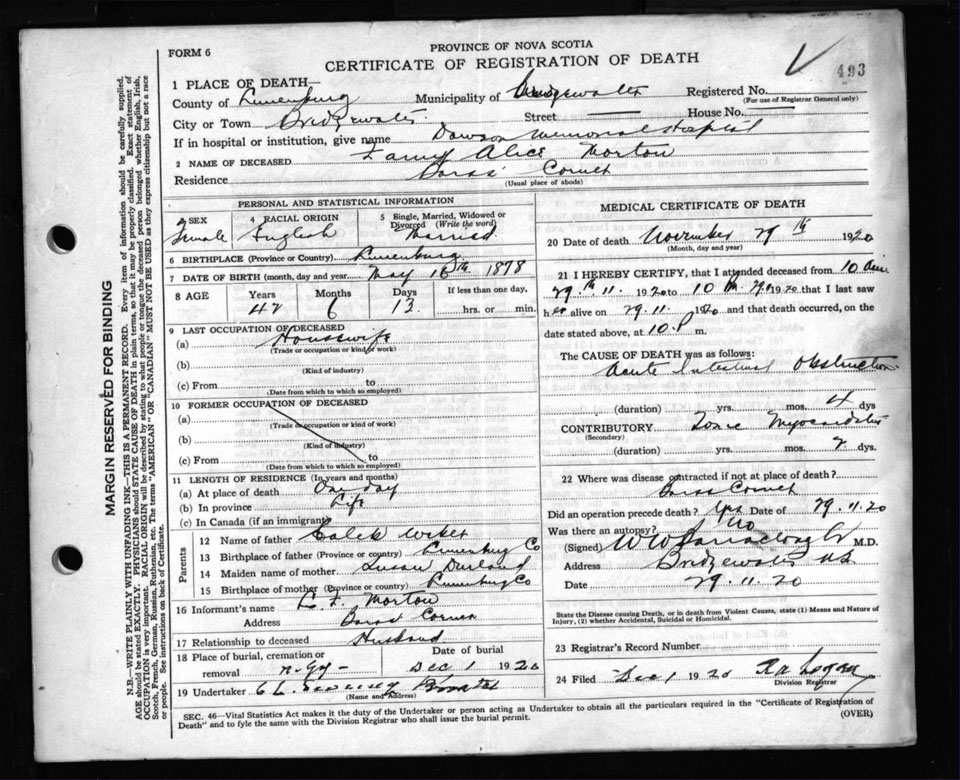 FORM 6
PROVINCE OF NOVA SCOTIA
CERTIFICATE OF REGISTRATION OF DEATH
493
1 PLACE OF DEATH—
County of Lunenburg Municipality of Bridgewater Registered No.
(For use of Registrar General only)
City or Town Bridgewater Street — House No. —
If in hospital or institution, give name Dawson Memorial Hospital
2 NAME OF DECEASED Fanny Alice Morton
Residence Barss' Corner
(Usual place of abode)
MARGIN RESERVED FOR BINDING
N.B.—WRITE PLAINLY WITH UNFADING INK—THIS IS A PERMANENT RECORD. Every item of information should be carefully supplied.
AGE should be stated EXACTLY. PHYSICIANS should STATE CAUSE OF DEATH in plain terms, so that it may be properly classified. Exact statement of
OCCUPATION is very important. RACIAL ORIGIN will be described by stating to what people or tongue the deceased person belonged whether English, Irish,
Scotch, French, German, Russian, Ruthenian, etc. The terms "AMERICAN" OR "CANADIAN" MUST NOT BE USED as they express citizenship but not a race
or people. See instructions on back of Certificate.
PERSONAL AND STATISTICAL INFORMATION
3 SEX Female
4 RACIAL ORIGIN English
5 Single, Married, Widowed or Divorced (Write the word) Married
6 BIRTHPLACE (Province or Country) Lunenburg
7 DATE OF BIRTH (month, day and year) May 16th 1878
8 AGE Years 42 Months 6 Days 13 If less than one day, hrs. or min.
9 LAST OCCUPATION OF DECEASED
(a) Housewife
(Trade or occupation or kind of work)
(b)
(Kind of industry)
(c) From to
(Date from which to which so employed)
10 FORMER OCCUPATION OF DECEASED
(a)
(Trade or occupation or kind of work)
(b)
(Kind of industry)
(c) From to
(Date from which to which so employed)
11 LENGTH OF RESIDENCE (In years and months)
(a) At place of death One day
(b) In province Life
(c) In Canada (if an immigrant)
Parents
12 Name of father Caleb
13 Birthplace of father (Province or country) Lunenburg Co
14 Maiden name of mother Susan Durland
15 Birthplace of mother (Province or country) Lunenburg Co
16 Informant's name Morton
Address Barss Corner
17 Relationship to deceased Husband
18 Place of burial, cremation or removal Date of burial Dec 1 1920
19 Undertaker
(Name and Address)
MEDICAL CERTIFICATE OF DEATH
20 Date of death November 29th 1920
(Month, day and year)
21 I HEREBY CERTIFY, that I attended deceased from 10 am
29.th 11. 1920 to 10 1920 that I last saw
her alive on 29.11 1920 and that death occurred, on the
date stated above, at 10.P m.
The CAUSE OF DEATH was as follows:
Acute Intestinal Obstruction
(duration) yrs. mos. 4 dys
CONTRIBUTORY Toxic Myocarditis
(Secondary)
(duration) yrs. mos. 2 dys.
22 Where was disease contracted if not at place of death?
Barss Corner
Did an operation precede death? Yes Date of 29.11.20
Was there an autopsy? No
(Signed) M.D.
Address Bridgewater N.S.
Date 29.11.20
State the Disease causing Death, or in death from Violent Causes, state (1) Means and Nature of
Injury, (2) whether Accidental, Suicidal or Homicidal.
23 Registrar's Record Number
24 Filed Dec 1 1920
Division Registrar
SEC. 46—Vital Statistics Act makes it the duty of the Undertaker or person acting as Undertaker to obtain all the particulars required in the "Certificate of Registration of
Death" and to fyle the same with the Division Registrar who shall issue the burial permit. (OVER)